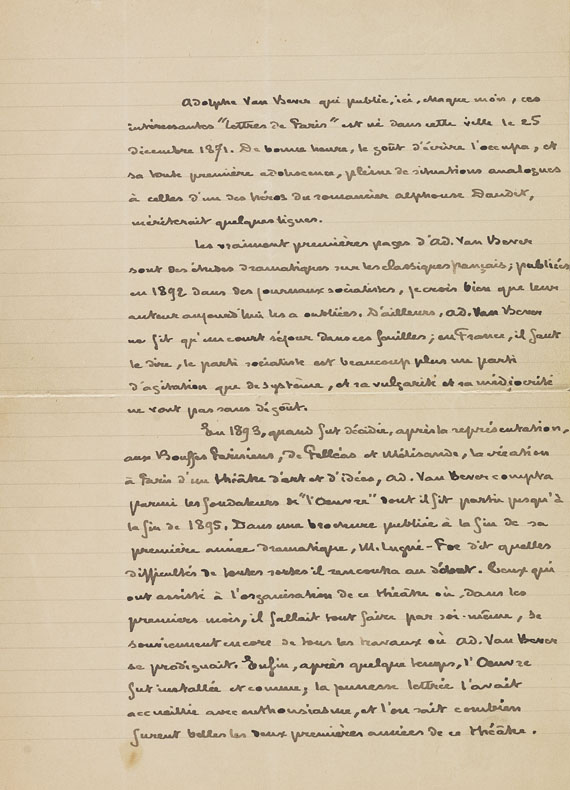 Adolphe Van Bever qui publie, ici, chaque mois, ces
intéressantes "lettres de Paris" est né dans cette ville le 25
décembre 1871. De bonne heure, le goût d'écrire l'occupa, et
sa toute première adolescence, pleine de situations analogues
à celles d'un des héros du romancier Alphonse Daudet,
mériterait quelques lignes.
Les vraiment premières pages d'Ad. Van Bever
sont des études dramatiques sur les classiques français; publiées
en 1892 dans des journaux socialistes, je crois bien que leur
auteur aujourd'hui les a oubliées. D'ailleurs, Ad. Van Bever
ne fit qu'un court séjour dans ces feuilles; en France, il faut
le dire, le parti socialiste est beaucoup plus un parti
d'agitation que de système, et sa vulgarité et sa médiocrité
ne vont pas sans dégoût.
En 1893, quand fut décidée, après la représentation,
aux Bouffes Parisiens, de Pelléas et Mélisande, la création
à Paris d'un théâtre d'art et d'idées, Ad. Van Bever compta
parmi les fondateurs de "l'Oeuvre" dont il fit partie jusqu'à
la fin de 1895. Dans une brochure publiée à la fin de sa
première année dramatique, M. Lugné-Poe dit quelles
difficultés de toutes sortes il rencontra au début. Ceux qui
ont assisté à l'organisation de ce théâtre où, dans les
premiers mois, il fallait tout faire par soi-même, se
souviennent encore de tous les travaux où Ad. Van Bever
se prodiguait. Enfin, après quelque temps, l'Oeuvre
fut installée et connue; la jeunesse lettrée l'avait
accueillie avec enthousiasme, et l'on sait combien
furent belles les deux premières années de ce théâtre.